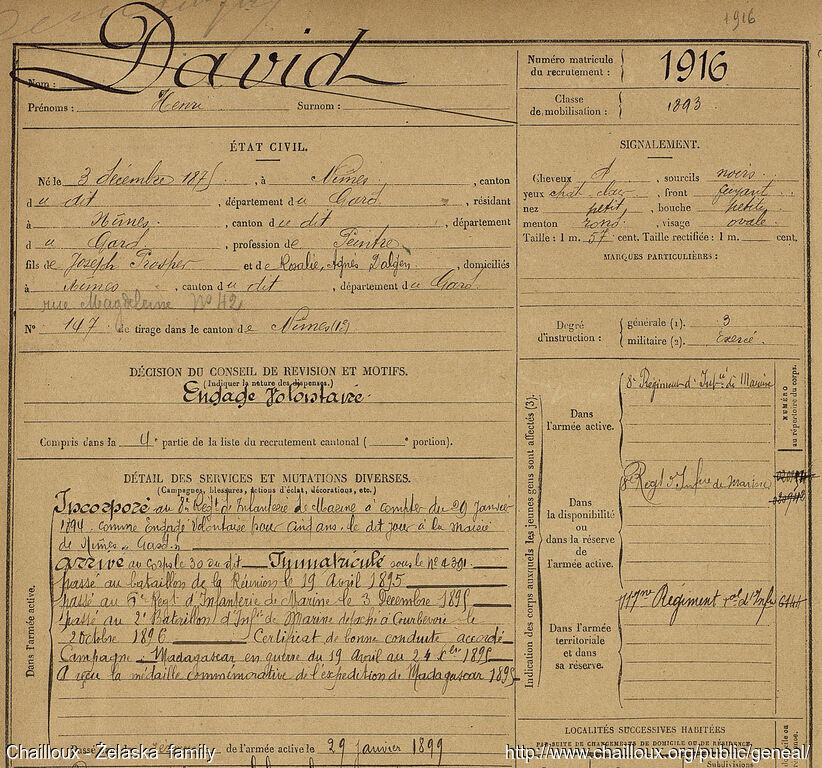 1916
David
Nom :
Prénoms : Henri Surnom :
Numéro matricule
du recrutement : 1916
Classe
de mobilisation : 1893
ÉTAT CIVIL.
Né le 3 décembre 1875, à Nîmes, canton
du dit, département du Gard, résidant
à Nîmes, canton du dit, département
du Gard, profession de Peintre
fils de Joseph Prosper et de Rosalie, Agnès, domiciliés
à Nîmes, canton du dit, département du Gard
rue Magdeleine No 42
No 147 de tirage dans le canton de Nîmes
SIGNALEMENT.
Cheveux d, sourcils noirs
yeux chat. clair, front fuyant
nez petit, bouche petite
menton rond, visage ovale
Taille : 1 m. 57 cent. Taille rectifiée : 1 m. cent.
MARQUES PARTICULIÈRES :
Degré
d'instruction :
générale (1). 3
militaire (2). Exercé.
DÉCISION DU CONSEIL DE REVISION ET MOTIFS.
(Indiquer la nature des dispenses.)
Engagé Volontaire.
Compris dans la 4e partie de la liste du recrutement cantonal ( e portion).
DÉTAIL DES SERVICES ET MUTATIONS DIVERSES.
(Campagnes, blessures, actions d'éclat, décorations, etc.)
Dans l'armée active.
Incorporé au 8e Regt d'Infanterie de Marine à compter du 29 Janvier
1894 comme Engagé Volontaire pour cinq ans le dit jour à la Mairie
de Nîmes Gard
Arrivé au corps le 30 du dit Immatriculé sous le No 4301
passé au bataillon de la Réunion le 19 Avril 1895
passé au Regt d'Infanterie de Marine le 3 Decembre 1895
passé au 2e Bataillon d'Infie de Marine détaché à Courbevoie le
2 octobre 1896 Certificat de bonne conduite accordé
Campagne : Madagascar en guerre du 19 Avril au 24 Xbre 1895
A reçu la médaille commémorative de l'expédition de Madagascar 1895
de l'armée active le 29 janvier 1899
Indication des corps auxquels les jeunes gens sont affectés (3).
NUMÉRO
au répertoire du corps.
Dans
l'armée active.
8e Régiment d'Infie de Marine
Dans
la disponibilité
ou
dans la réserve
de
l'armée active.
8e Regt d'Infie de Marine
Dans l'armée
territoriale
et dans
sa réserve.
117me Régiment ral d'Infie 6144
LOCALITÉS SUCCESSIVES HABITÉES
PAR SUITE DE CHANGEMENTS DE DOMICILE OU DE RÉSIDENCE.
Subdivisions
Chailloux Zelaska family
http://www.chailloux.org/public/geneal/